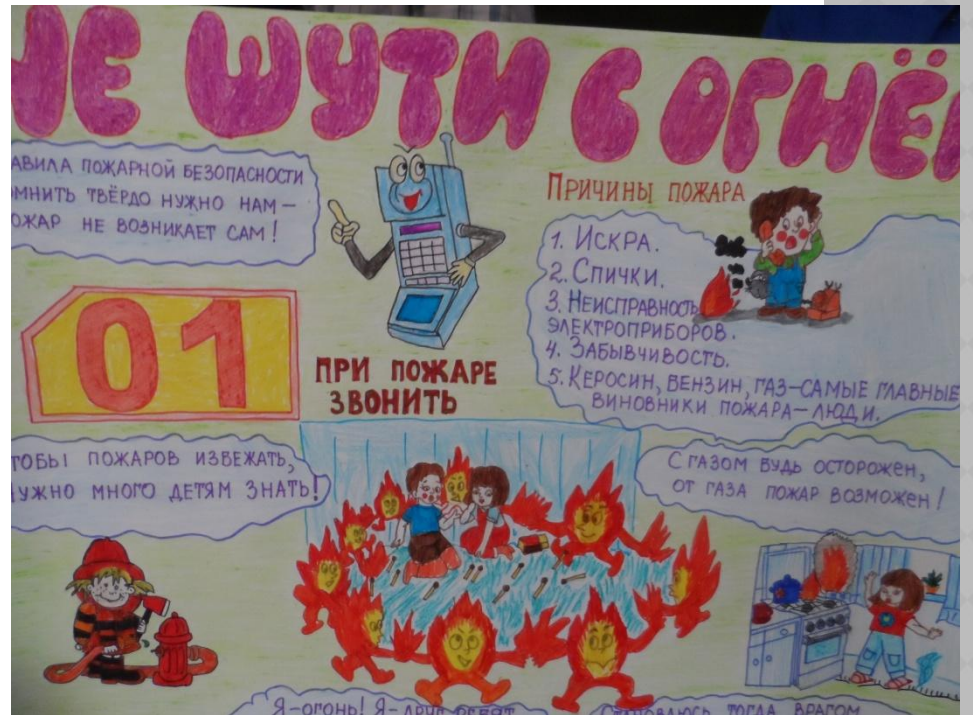 НЕ ШУТИ С ОГНЁ
АВИЛА ПОЖАРНОЙ БЕЗОПАСНОСТИ
ОМНИТЬ ТВЁРДО НУЖНО НАМ –
ОЖАР НЕ ВОЗНИКАЕТ САМ!
01
ПРИ ПОЖАРЕ
ЗВОНИТЬ
ПРИЧИНЫ ПОЖАРА
1. ИСКРА.
2. СПИЧКИ.
3. НЕИСПРАВНОСТЬ
ЭЛЕКТРОПРИБОРОВ.
4. ЗАБЫВЧИВОСТЬ.
5. КЕРОСИН, БЕНЗИН, ГАЗ – САМЫЕ ГЛАВНЫЕ
ВИНОВНИКИ ПОЖАРА – ЛЮДИ.
ТОБЫ ПОЖАРОВ ИЗБЕЖАТЬ,
НУЖНО МНОГО ДЕТЯМ ЗНАТЬ!
С ГАЗОМ БУДЬ ОСТОРОЖЕН,
ОТ ГАЗА ПОЖАР ВОЗМОЖЕН!
Я – ОГОНЬ! Я – ДРУГ РЕБЯТ
СТАНОВЛЮСЬ ТОГДА ВРАГОМ